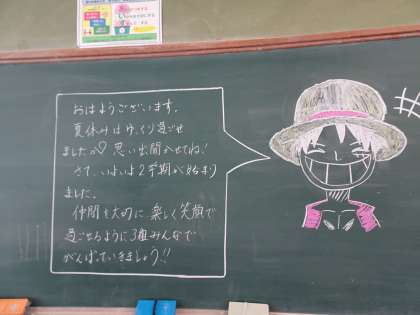 おはようございます。
夏休みはゆっくり過ごせ
ましたか♡思い出聞かせてね!
さて、いよいよ2学期が始まり
ました。
仲間を大切に 楽しく笑顔で
過ごせるように3組みんなで
がんばっていきましょう!!